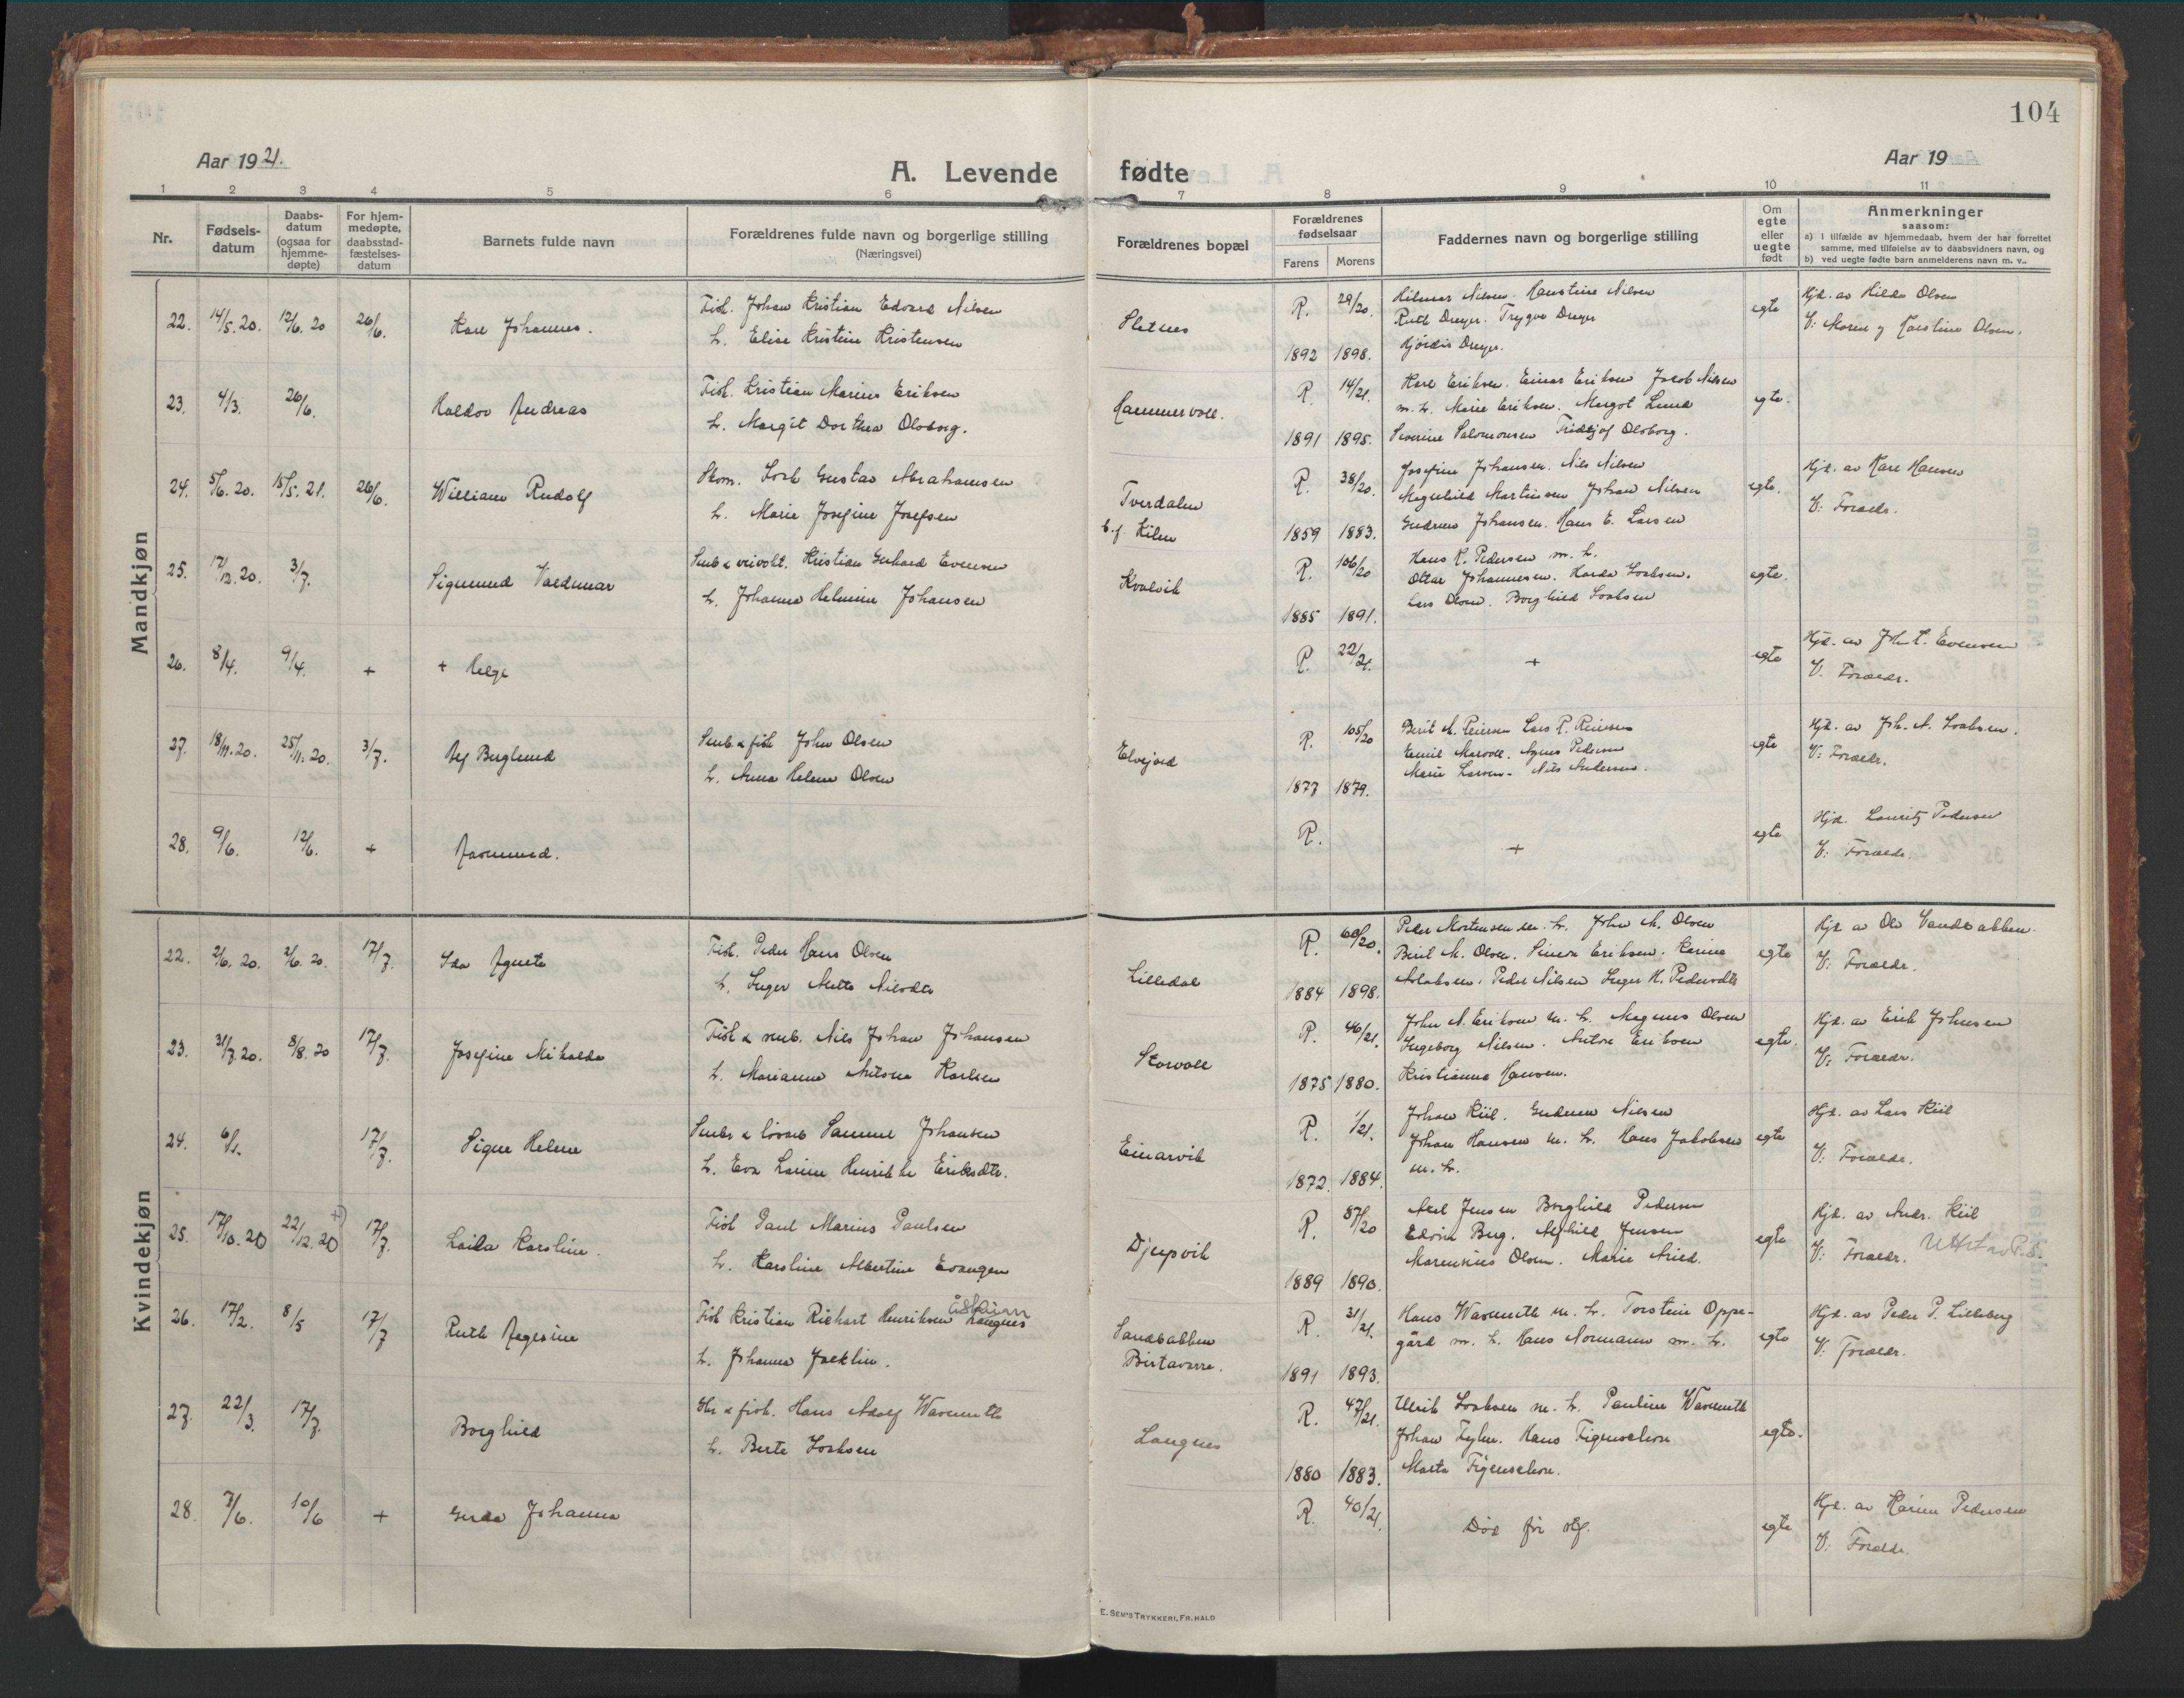 104
Aar 1921.
A. Levende fødte
Aar 19
1 2 3 4 5 6 7 8 9 10 11
Nr.
Fødsels-
datum
Daabs-
datum
(ogsaa for
hjemme-
døpte)
For hjem-
medøpte,
daabsstad-
fæstelses-
datum
Barnets fulde navn
Forældrenes fulde navn og borgerlige stilling
(Næringsvei)
Forældrenes bopæl
Forældrenes
fødselsaar
Farens Morens
Faddernes navn og borgerlige stilling
Om
egte
eller
uegte
født
Anmerkninger
saasom:
a) i tilfælde av hjemmedaab, hvem der har forrettet
samme, med tilføielse av to daabsvidners navn, og
b) ved uegte fødte barn anmelderens navn m. v..
Mandkjøn
22. 14/5. 20. 12/6. 20 26/6. Kare Johannes. Fisk. Johan Kristian Edvard Nilsen
h. Elise Kristine Kristensen
Sletnes R. 29/20. 1892 1898.
Hilmar Nilsen. Hanstine Nilsen
Ruth Dreyer. Trygve Dreyer
Hjördis Dreyer.
egte
Hjd. av Hilda Olsen
V: Maren og Karstine Olsen.
23. 4/3. 26/6. Haldor Andreas Fisk. Kristian Marius Eriksen
h. Margit Dorthea Olsborg.
Hammervoll. R. 14/21. 1891 1895.
Karl Eriksen. Einar Eriksen Jacob Nilsen
m. h. Marie Eriksen. Margot Lund
Severine Salomonsen Fridtjof Olsborg.
egte.
24. 5/6. 20. 15/5. 21. 26/6. William Rudolf Skom. Gustav Abrahamsen
h. Marie Josefine Josefsen
Tverdalen
b. f. Kilen
R. 38/20. 1859 1883.
Josefine Johansen. Nils Nilsen
Magnhild Martinsen Johan Nilsen
Gudrun Johansen. Hans E. Larsen
egte.
Hjd. av Kare Hansen
V: Forældr.
25. 17/12. 20. 3/7. Sigmund Valdemar Kristian Gerhard Evensen
h. Johanna Helmine Johansen
Kvalvik R. 106/20 1885 1891.
Hans R. Pedersen m. h.
Ottar Johannesen. Isaksen.
Lars Olsen. Borghild Isaksen
egte.
26. 8/4. 9/4. + + Helge R. 22/21. + egte
Hjd. av Joh. Evensen
V. Forældr.
27. 18/11. 20. 25/11. 20. 3/7. Berglund Smb & fisk John Olsen
h. Anna Helene Olsen
Elvejord R. 105/20 1877 1879.
Berit A. Lars P.
Emil Marvoll. Agnes Pedersen
Marie Larsen. Nils Andersen.
egte
Hjd. av Joh. A. Isaksen.
V: Forældr.
28. 9/6. 12/6. + R. + egte
Hjd. Lauritz Pedersen
V: Forældr.
Kvindekjøn
22. 2/6. 20. 2/6. 20. 17/7. Ida Agneta Fisk. Peder Hans Olsen
h. Inger Mette Nilsdtr
Lilledal R. 60/20. 1884 1898.
Peder Mortensen m. h. John M. Olsen
Beril M. Olsen. Eriksen. Karine
Peder Nilsen Inger H. Pedersdtr
egte
Hjd. av Ole Sandbakken.
V: Forældr.
23. 31/7. 20. 8/8. 20 17/7. Josefine Mikalda Fisk & smb. Nils Johan Johansen
h. Marianne Antona Karlsen
Storvoll R. 46/21. 1875 1880.
John N. Eriksen m. h. Magnus Olsen
Ingeborg Nilsen. Antone Eriksen
Kristianna Hansen.
egte.
Hjd. av Erik Johnsen
V: Forældr.
24. 6/1. 17/7. Signe Helene Samuel Johansen
h. Eva Larine Henrikke Eriksdtr.
Einarvik R. 1/21. 1872. 1884.
Johan Kiil. Gudrun Nilsen
Johan Hansen m. h. Hans Jakobsen
m. h.
egte
Hjd. av Lars Kiil
V: Forældr.
25. 17/10. 20 22/12. 20 17/7. Laila Karoline. Fisk Paul Marius Paulsen
h. Karoline Albertine Evangen
Djupvik R. 87/20 1889 1890.
Axel Jensen Borghild Pedersen
Edvin Berg. Alfhild Jensen
Marensius Olsen. Marie
egte
Hjd. av Andr. Kiil
V: Forældr. Utst av P. S.
26. 17/2. 8/5 17/7 Ruth Fisk Kristian Rikhart Henriksen Langnes
h. Johanna Jacklin.
Sandbakken
Birtavarre. R. 31/21. 1891 1893.
Hans Warmuth m. h. Torstein Oppe-
gård m. h. Hans Normann m. h.
egte
Hjd. av Peder P. Lilleberg
V: Forældr.
27. 22/3. 17/7. Borghild Gbr & fisk. Hans Adolf Warmuth
h. Berte Isaksen
Langnes R. 47/21. 1880 1883.
Ulrik Isaksen m. h. Pauline Warmuth
Johan Hans Figenschou
Marta Figenschou.
egte.
28. 7/6. 10/6 + Gerda Johanna R. 40/21. Död för stf. egte
Hjd. av Karine Pedersen
V: Forældr.
E. SEM'S TRYKKERI, FR.HALD